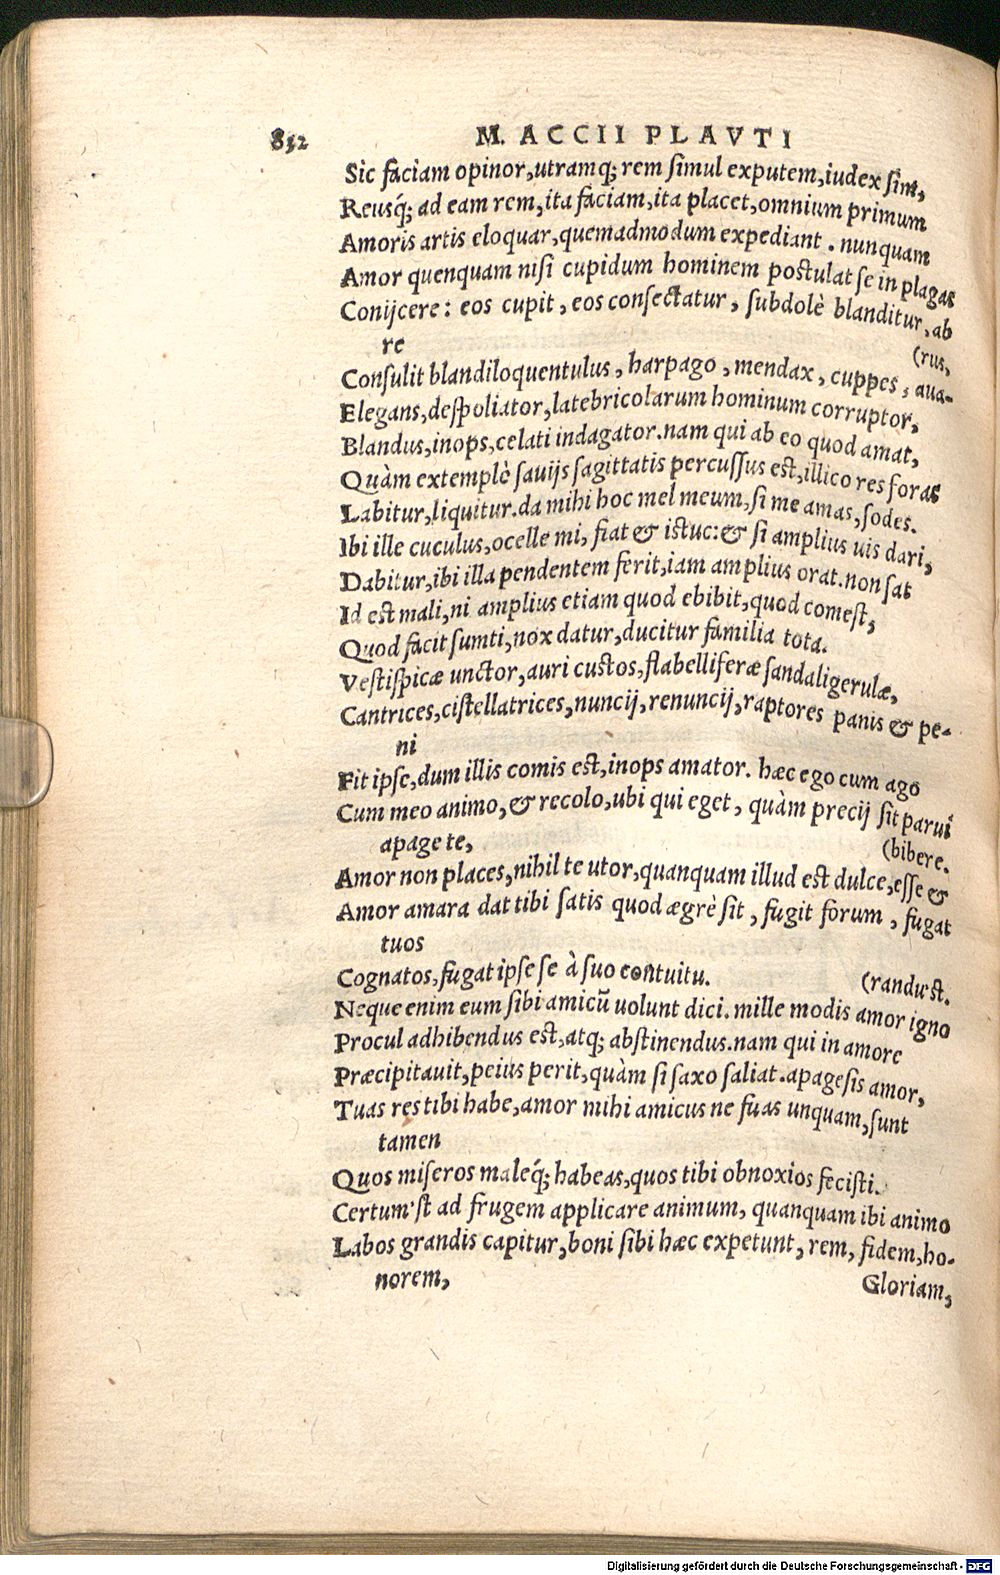 832 M. ACCII PLAVTI
Sic faciam opinor, utramq; rem simul exputem, iudex sim,
Reusq́; ad eam rem, ita faciam, ita placet, omnium primum
Amoris artis eloquar, quemadmodum expediant. nunquam
Amor quenquam nisi cupidum hominem postulat se in plagas
Conijcere: eos cupit, eos consectatur, subdolè blanditur, ab
re (rus,
Consulit blandiloquentulus, harpago, mendax, cuppes, aua-
Elegans, despoliator, latebricolarum hominum corruptor,
Blandus, inops, celati indagator. nam qui ab eo quod amat,
Quàm extemplè sauijs sagittatis percussus est, illico res foras
Labitur, liquitur. da mihi hoc mel meum, si me amas, sodes.
Ibi ille cuculus, ocelle mi, fiat & istuc: & si amplius uis dari,
Dabitur, ibi illa pendentem ferit, iam amplius orat. non sat
Id est mali, ni amplius etiam quod ebibit, quod comest,
Quod facit sumti, nox datur, ducitur familia tota.
Vestispicæ unctor, auri custos, flabelliferæ sandaligerulæ,
Cantrices, cistellatrices, nuncij, renuncij, raptores panis & pe-
ni
Fit ipse, dum illis comis est, inops amator. hæc ego cum ago
Cum meo animo, & recolo, ubi qui eget, quàm precij sit parui
apage te, (bibere.
Amor non places, nihil te utor, quanquam illud est dulce, esse &
Amor amara dat tibi satis quod ægrè sit, fugit forum, fugat
tuos
Cognatos, fugat ipse se à suo contuitu. (randu'st.
Neque enim eum sibi amicū uolunt dici. mille modis amor igno
Procul adhibendus est, atq; abstinendus. nam qui in amore
Præcipitauit, peius perit, quàm si saxo saliat. apagesis amor,
Tuas res tibi habe, amor mihi amicus ne fuas unquam, sunt
tamen
Quos miseros maleq́; habeas, quos tibi obnoxios fecisti.
Certum'st ad frugem applicare animum, quanquam ibi animo
Labos grandis capitur, boni sibi hæc expetunt, rem, fidem, ho-
norem, Gloriam,
Digitalisierung gefördert durch die Deutsche Forschungsgemeinschaft - DFG